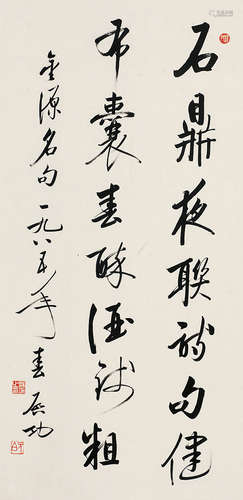 石鼎夜聯詩句健
布囊春醉酒錢粗
金源名句一九八五年春启功